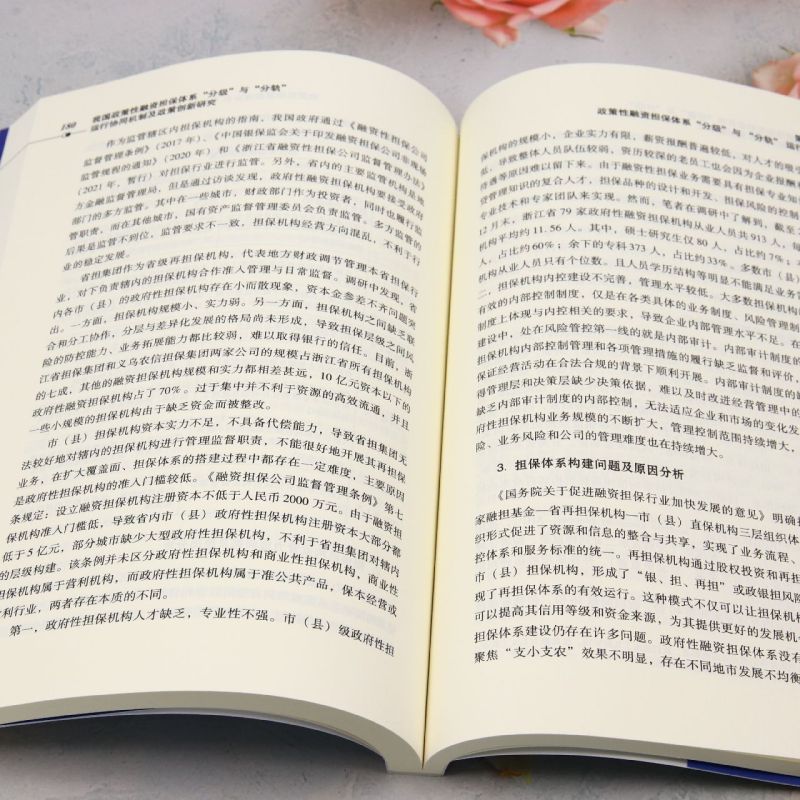 180
我国政策性融资担保体系“分级”与“分轨”
运行协同机制及政策创新研究
作为监管辖区内担保机构的指南，我国政府通过《融资性担保公司
监督管理条例》（2017 年）、《中国银保监会关于印发融资担保公司非现场
监管规程的通知》（2020 年）和《浙江省融资性担保公司监督管理办法》
（2021 年，暂行）对担保行业进行监管。另外，省内的主要监管机构是地
方金融监督管理局，但是通过访谈发现，政府性融资担保机构要接受政府
部门的多方监管。其中在一些城市，财政部门作为投资者，同时也履行监
管职责，而在其他城市，国有资产监督管理委员会负责监管。多方监管的
后果是监管不到位，监管要求不一致，担保机构经营方向混乱，不利于行
业的稳定发展。
省担集团作为省级再担保机构，代表地方财政调节管理本省担保行
业，对下负责辖内的担保机构合作准入管理与日常监督。调研中发现，省
内各市（县）的政府性担保机构存在小而散现象，资本金参差不齐问题突
出。一方面，担保机构规模小、实力弱。另一方面，担保机构之间缺乏联
合和分工协作，分层与差异化发展的格局尚未形成，导致担保层级之间风
险的防控能力、业务拓展能力都比较弱，难以取得银行的信任。目前，浙
江省担保集团和义乌农信担保集团两家公司的规模占浙江省所有担保机构
的七成，其他的融资担保机构规模和实力都相差甚远，10 亿元资本以下的
政府性融资担保机构占了 70%。过于集中并不利于资源的高效流通，并且
一些小规模的担保机构由于缺乏资金而被整改。
市（县）担保机构资本实力不足，不具备代偿能力，导致省担集团无
法较好地对辖内的担保机构进行管理监督职责，不能很好地开展其再担保
业务，在扩大覆盖面、担保体系的搭建过程中都存在一定难度，主要原因
是政府性担保机构的准入门槛较低。《融资担保公司监督管理条例》第七
条规定：设立融资担保机构注册资本不低于人民币 2000 万元。由于融资担
保机构准入门槛低，导致省内市（县）政府性担保机构注册资本大部分都
低于 5 亿元，部分城市缺少大型政府性担保机构，不利于省担集团对辖内
的层级构建。该条例并未区分政府性担保机构和商业性担保机构，商业性
担保机构属于营利机构，而政府性担保机构属于准公共产品，保本经营或
利行业，两者存在本质的不同。
第一，政府性担保机构人才缺乏，专业性不强。市（县）级政府性担
政策性融资担保体系“分级”与“分轨”运行
保机构的规模小，企业实力有限，薪资报酬普遍较低，对人才的吸引
低，导致整体人员队伍较弱，资历较深的老员工也会因为企业报酬
待遇等原因难以留下来。由于融资性担保业务需要具有担保专业知
资管理知识的复合人才，担保品种的设计和开发、担保风险的控制
专业技术和专家团队来实现。然而，笔者在调研中了解到，截至2
12 月末，浙江省 79 家政府性融资担保机构从业人员共 913 人，每
机构平均约 11. 56 人。其中，硕士研究生仅 80 人，占比约 7%；本
人，占比约60%；余下的专科 373 人，占比约 33%。多数市（县）
机构从业人员只有个位数。且人员学历结构等明显不能满足业务
二，担保机构内控建设不完善，管理水平较低。大多数担保机构
有效的内部控制制度，仅是在各类具体的业务制度、风险管理制
制度上体现与内控相关的要求，导致企业内部管理水平不足。在
建设中，处在风险管控第一线的就是内部审计。内部审计制度的
担保机构内部控制管理和各项管理措施的履行缺乏监督和评价，
保证经营活动在合法合规的背景下顺利开展。内部审计制度的缺
得管理层和决策层缺少决策依据，难以及时改进经营管理中的
缺乏内部审计制度的内部控制，无法适应企业和市场的变化发
府性担保机构业务规模的不断扩大，管理控制范围持续增大，
险、业务风险和公司的管理难度也在持续增大。
3. 担保体系构建问题及原因分析
《国务院关于促进融资担保行业加快发展的意见》明确
家融担基金—省再担保机构—市（县）直保机构三层组织体
织形式促进了资源和信息的整合与共享，实现了业务流程、
控体系和服务标准的统一。再担保机构通过股权投资和再担
市（县）担保机构，形成了“银、担、再担”或政银担风险
现了再担保体系的有效运行。这种模式不仅可以让担保机构
可以提高其信用等级和资金来源，为其提供更好的发展机
担保体系建设仍存在许多问题。政府性融资担保体系没有
聚焦“支小支农”效果不明显，存在不同地市发展不均衡